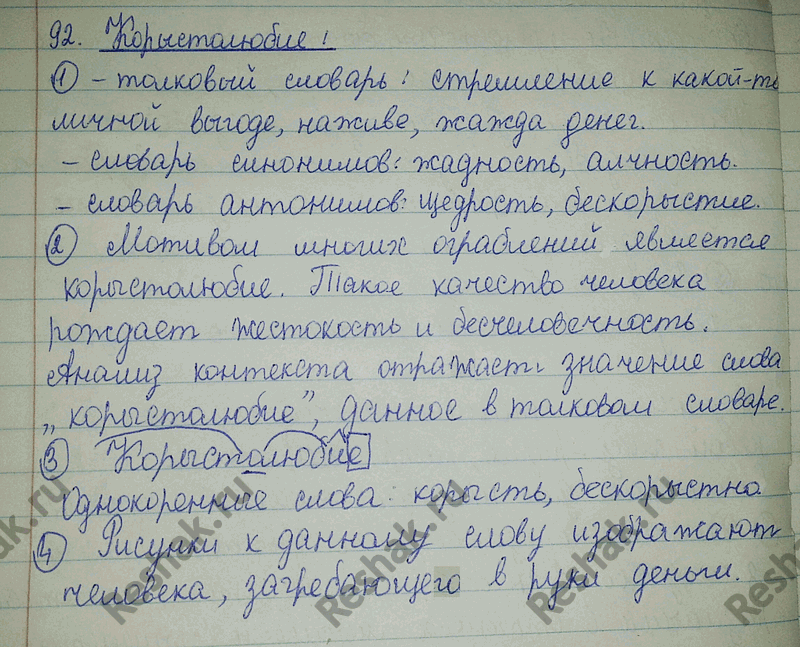 92. Корыстолюбие!
① – толковый словарь: стремление к какой-то
личной выгоде, наживе, жажда денег.
– словарь синонимов: жадность, алчность.
– словарь антонимов: щедрость, бескорыстие.
② Мотивом многих ограблений является
корыстолюбие. Такое качество человека
рождает жестокость и бесчеловечность.
Анализ контекста отражает значение слова
„корыстолюбие”, данное в толковом словаре.
③ Корыстолюбие
Однокоренные слова: корысть, бескорыстно
④ Рисунки к данному слову изображают
человека, загребающего в руки деньги.
Reshak.ru
Reshak.ru
Reshak.ru
Reshak.ru